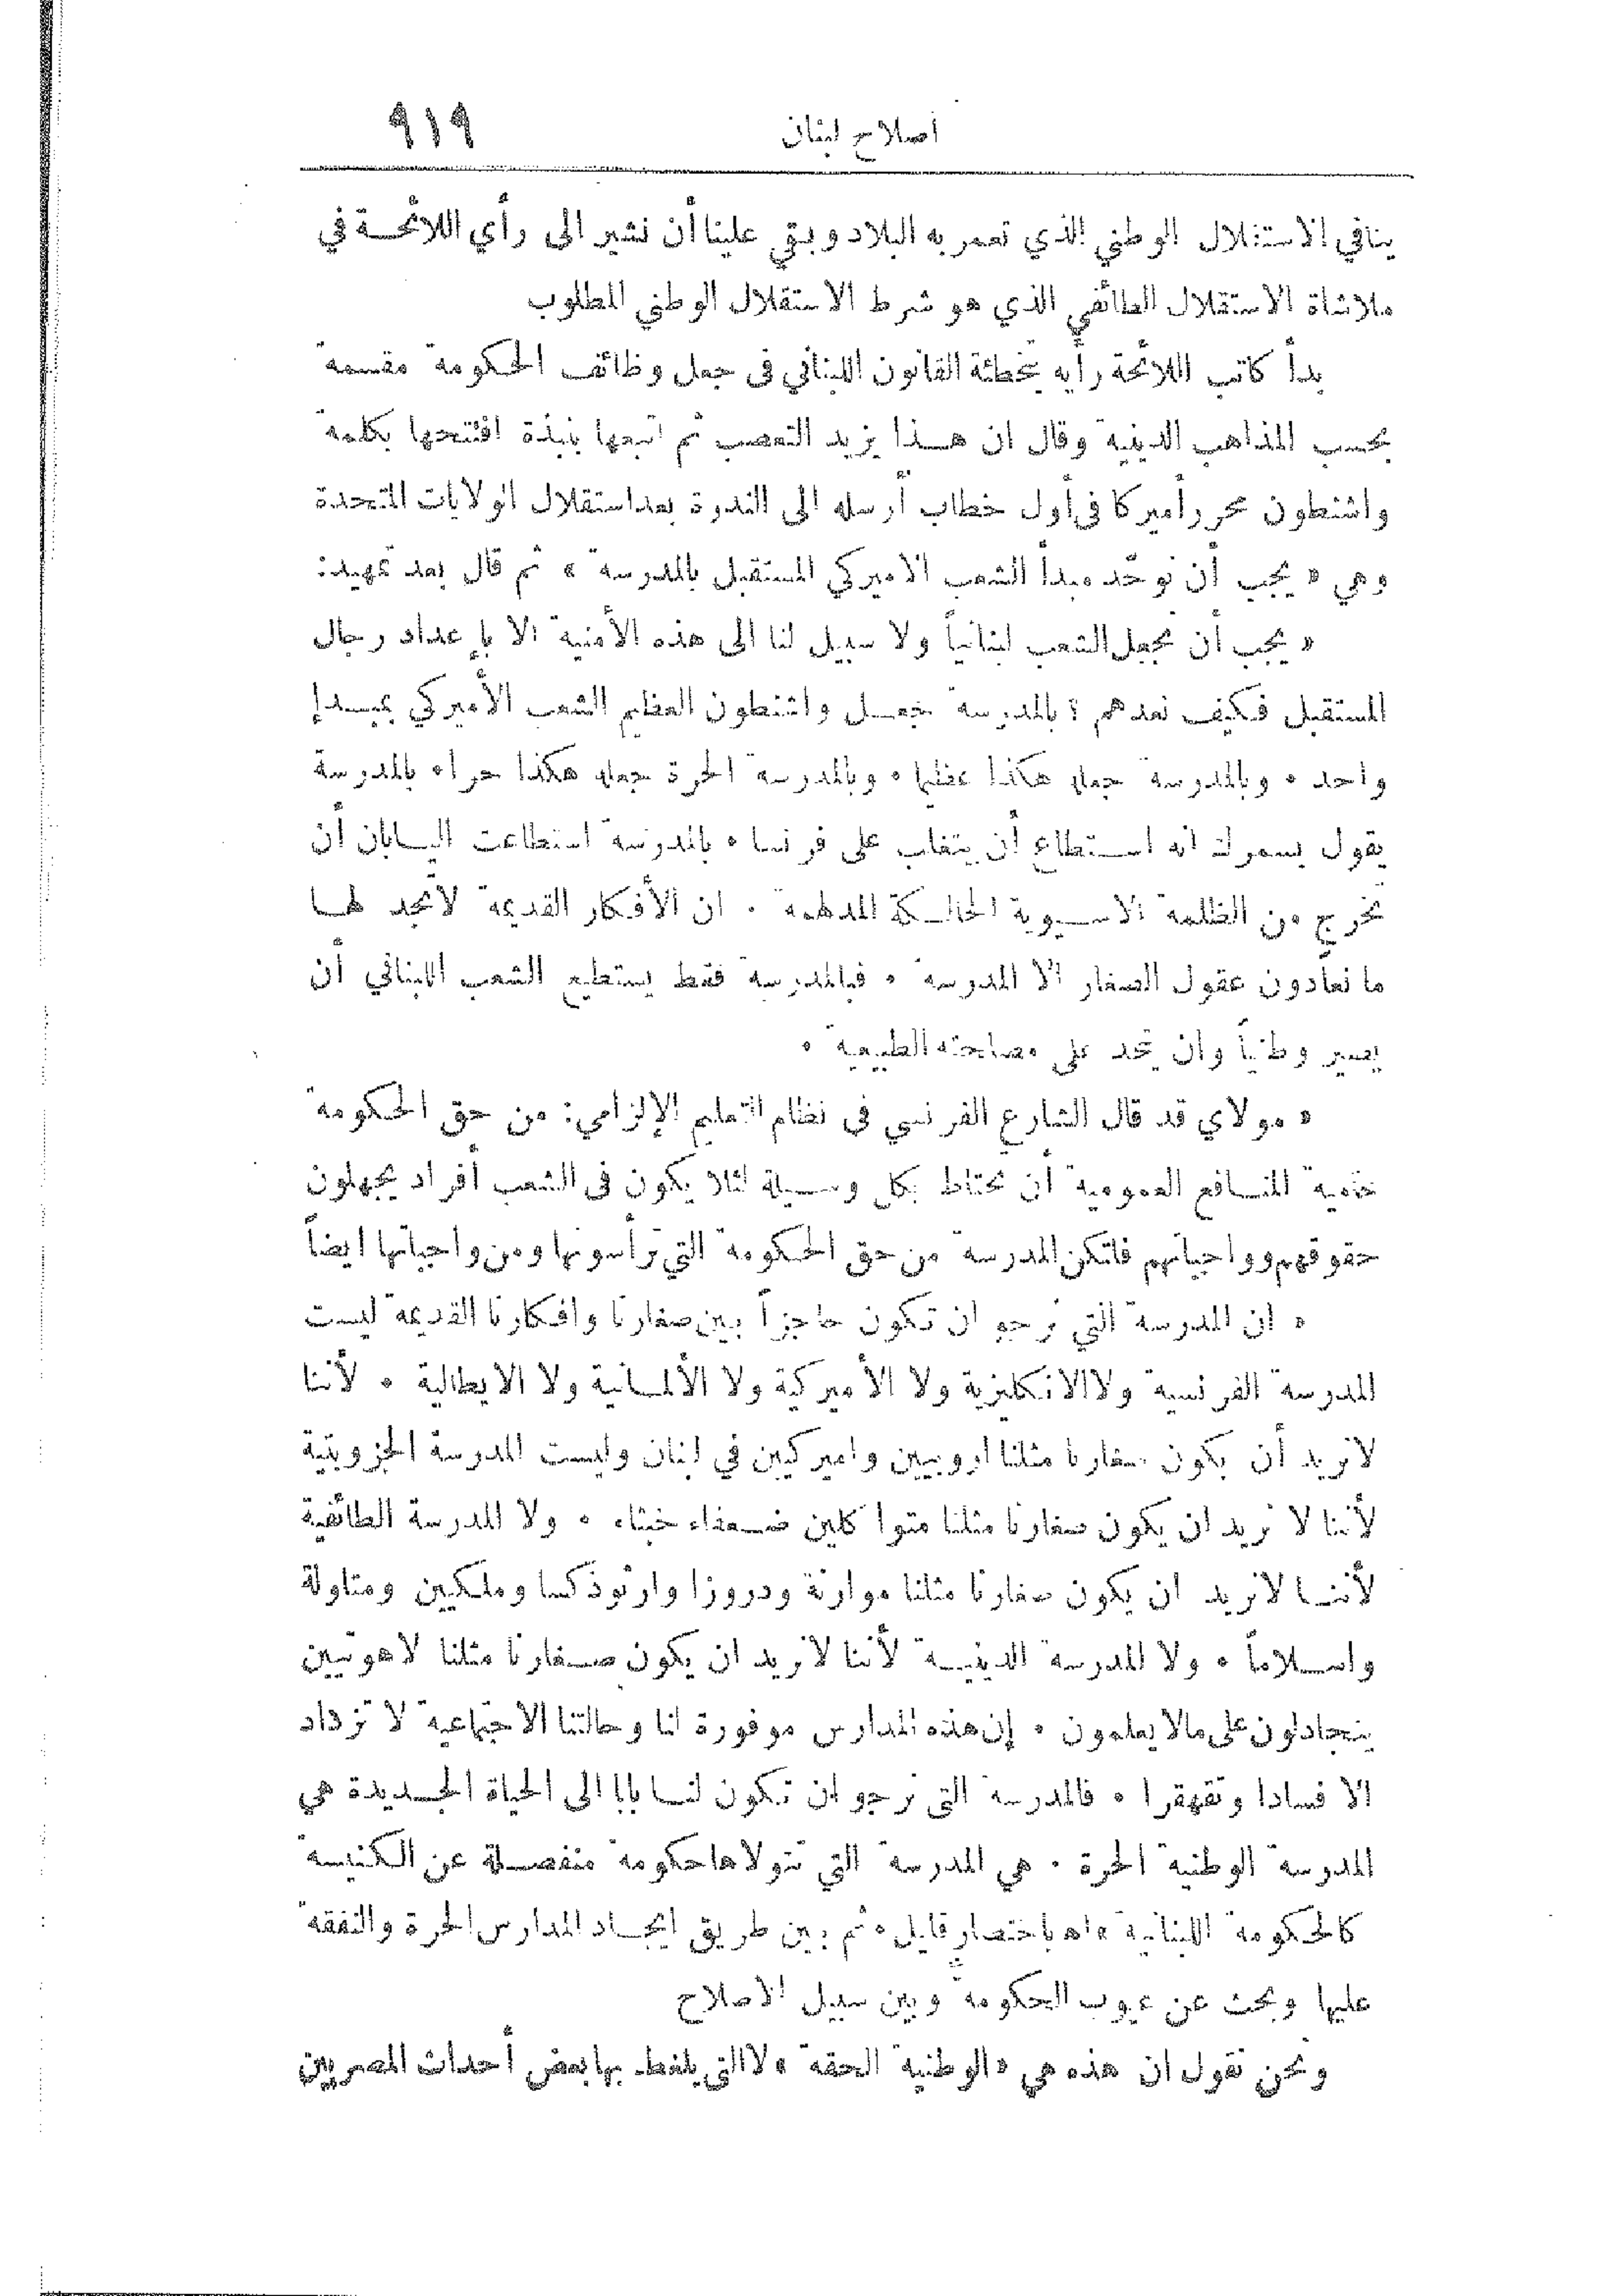 اصلاح لبنان
٩١٩
ينافي الاستقلال الوطني الذي تعمر به البلاد وبقي علينا أن نشير الى رأي اللائحة في
ملاشاة الاستقلال الطائفي الذي هو شرط الاستقلال الوطني المطلوب
بدأ كاتب اللائحة رأيه بتخطئة القانون اللبناني فى جعل وظائف الحكومة مقسمة
بحسب المذاهب الدينية وقال ان هذا يزيد التعصب ثم اتبعها بنبذة افتتحها بكلمة
واشنطون محرر أميركا فى أول خطاب أرسله الى الندوة بعد استقلال الولايات المتحدة
وهي « يجب أن نوحّد مبدأ الشعب الاميركي المستقبل بالمدرسة » ثم قال بعد تمهيد:
« يجب أن نجعل الشعب لبنانياً ولا سبيل لنا الى هذه الأمنية الا بإعداد رجال
المستقبل فكيف نعدهم ؟ بالمدرسة جعل واشنطون العظيم الشعب الأميركي بمبدإ
واحد ٠ وبالمدرسة جعله هكذا عظيما ٠ وبالمدرسة الحرة جعله هكذا حرا ٠ بالمدرسة
يقول بسمرك انه استطاع أن يتغلب على فرنسا ٠ بالمدرسة استطاعت اليابان أن
تخرج من الظلمة الاسيوية الحالكة المدلهمة ٠ ان الأفكار القديمة لا تجد لها
ما نعا دون عقول الصغار الا المدرسة ٠ فبالمدرسة فقط يستطيع الشعب اللبناني أن
يصير وطنياً وان يتحد على مصلحته الطبيعية ٠
« مولاي قد قال الشارع الفرنسي فى نظام التعليم الإلزامي: من حق الحكومة
خدمية المنافع العمومية أن تحتاط بكل وسيلة لئلا يكون فى الشعب أفراد يجهلون
حقوقهم وواجباتهم فلتكن المدرسة من حق الحكومة التي ترأسونها ومن واجباتها ايضاً
« ان المدرسة التي نرجو ان تكون حاجزاً بين صغارنا وافكارنا القديمة ليست
المدرسة الفرنسية ولا الانكليزية ولا الأميركية ولا الألمانية ولا الايطالية ٠ لأننا
لا نريد أن يكون صغارنا مثلنا اروبيين واميركيين في لبنان وليست المدرسة الجزويتية
لأننا لا نريد ان يكون صغارنا مثلنا متواكلين ضعفاء خبثاء ٠ ولا المدرسة الطائفية
لأننا لا نريد ان يكون صغارنا مثلنا موارنة ودروزا وارثوذكسا وملكيين ومتاولة
واسلاماً ٠ ولا المدرسة الدينية لأننا لا نريد ان يكون صغارنا مثلنا لاهوتيين
يتجادلون على ما لا يعلمون ٠ إن هذه المدارس موفورة لنا وحالتنا الاجتماعية لا تزداد
الا فسادا وتقهقرا ٠ فالمدرسة التي نرجو ان تكون لنا بابا الى الحياة الجديدة هي
المدرسة الوطنية الحرة ٠ هي المدرسة التي تتولاها حكومة منفصلة عن الكنيسة
كالحكومة اللبنانية » اه باختصار قليل ٠ ثم بين طريق ايجاد المدارس الحرة والنفقة
عليها وبحث عن عيوب الحكومة وبين سبيل الاصلاح
ونحن نقول ان هذه هي « الوطنية الحقة » لا التي يلغط بها بعض أحداث المصريين